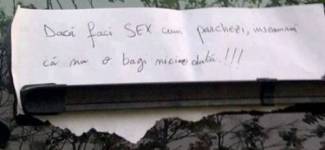 Dacă faci SEX cum parchezi, înseamnă
că nu o bagi niciodată!!!